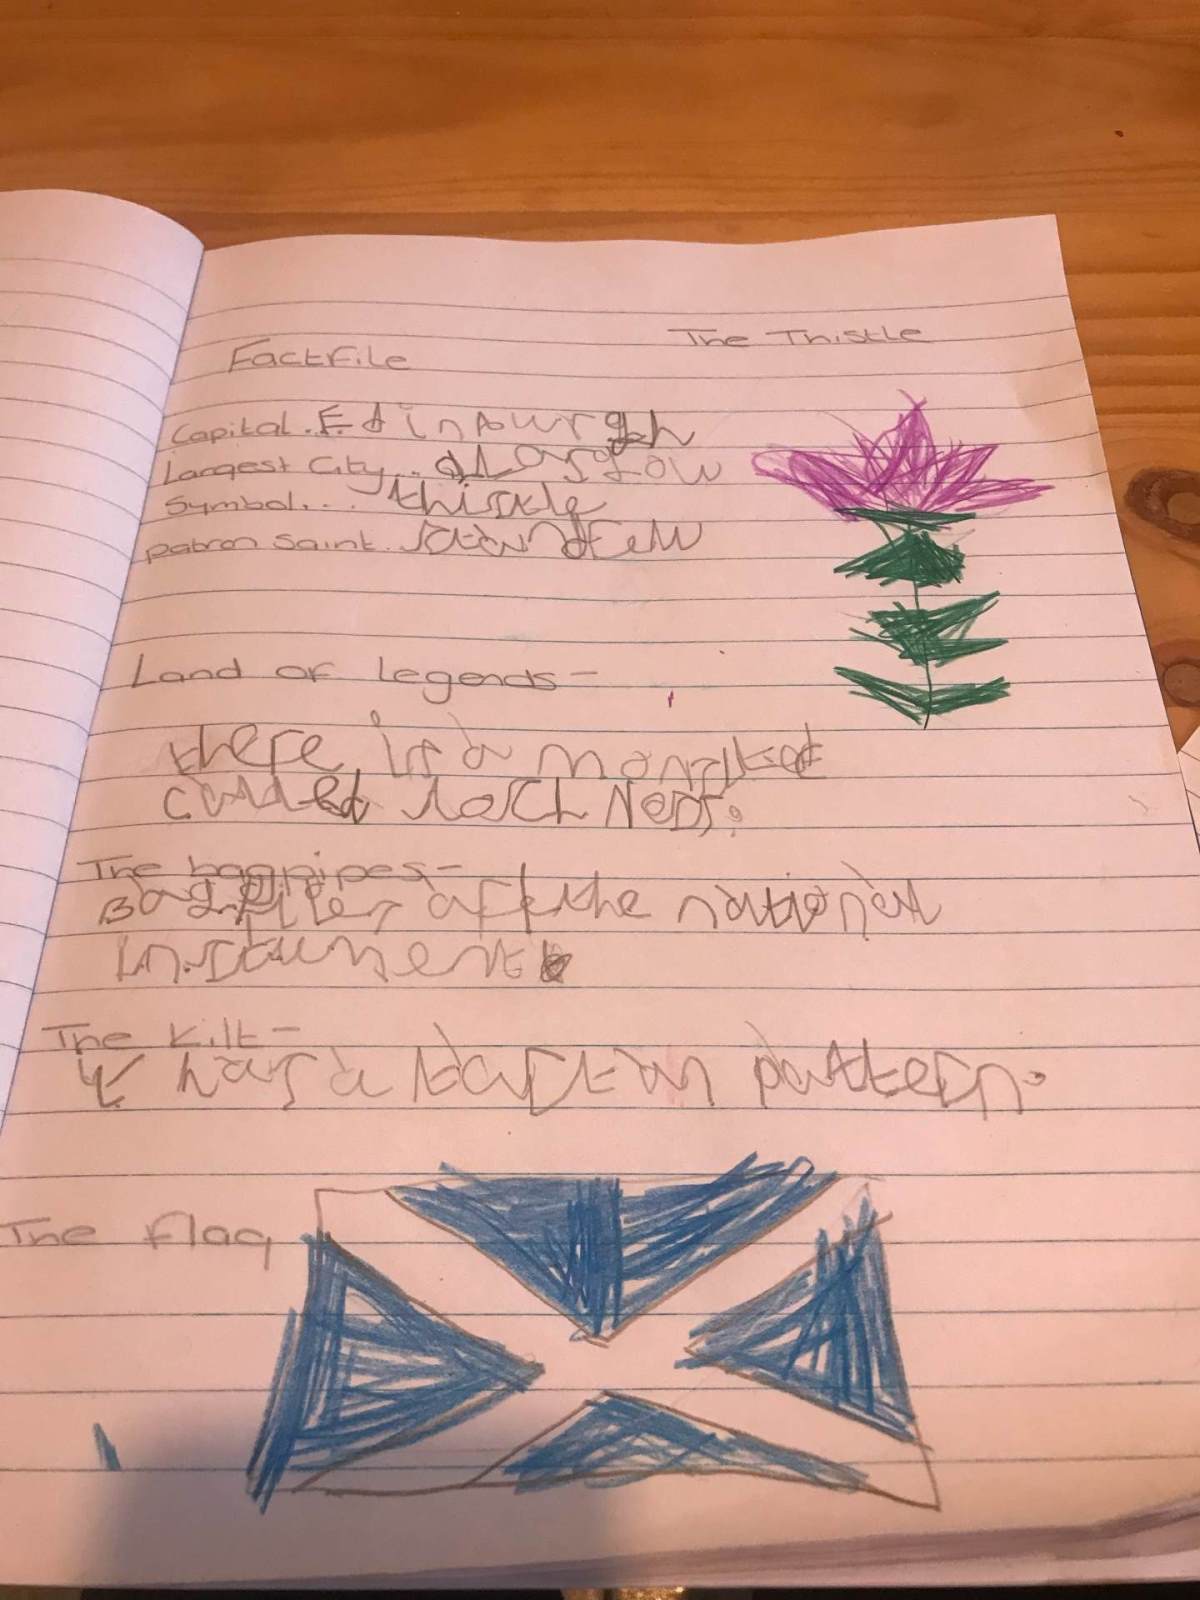 The Thistle
Factfile
Capital... Edinburgh
Largest City... Glasgow
Symbol.... thistle
patron saint.
Land of legends-
there is a
called loch Ness.
The bagpipes-
are the national
The Kilt-
It has a tartan pattern.
The flag